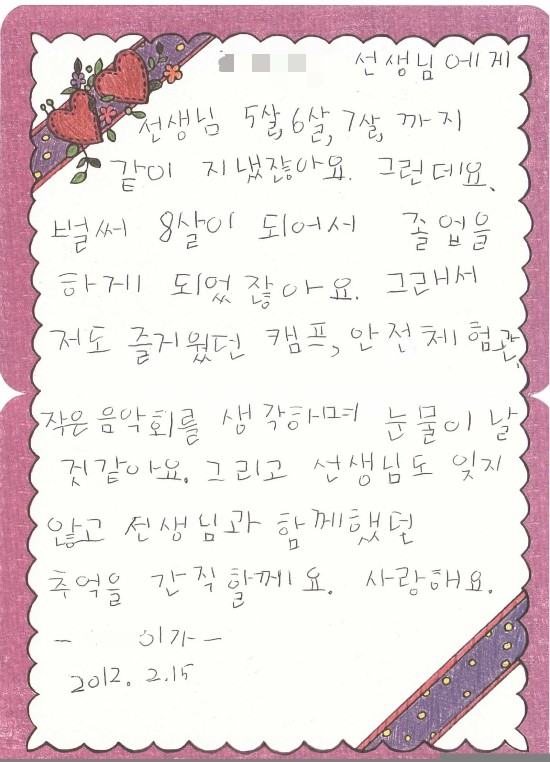 선생님에게
선생님 5살, 6살, 7살, 까지
같이 지냈잖아요. 그런데요.
벌써 8살이 되어서 졸업을
하게 되었잖아요. 그래서
저도 즐거웠던 캠프, 안전체험관,
작은음악회를 생각하며 눈물이 날
것같아요. 그리고 선생님도 잊지
않고 선생님과 함께했던
추억을 간직할께요. 사랑해요.
- 이가 -
2012. 2.15